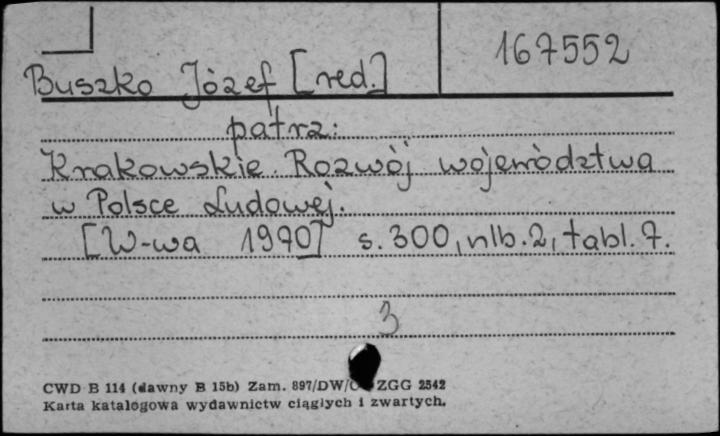 167552
Buszko Józef [red.]
patrz:
Krakowskie. Rozwój województwa
w Polsce Ludowej.
[W-wa 1970] s. 300, nlb. 2, tabl. 7.
3
CWD B 114 (dawny B 15b) Zam. 897/DW/ ZGG 2542
Karta katalogowa wydawnictw ciągłych i zwartych.